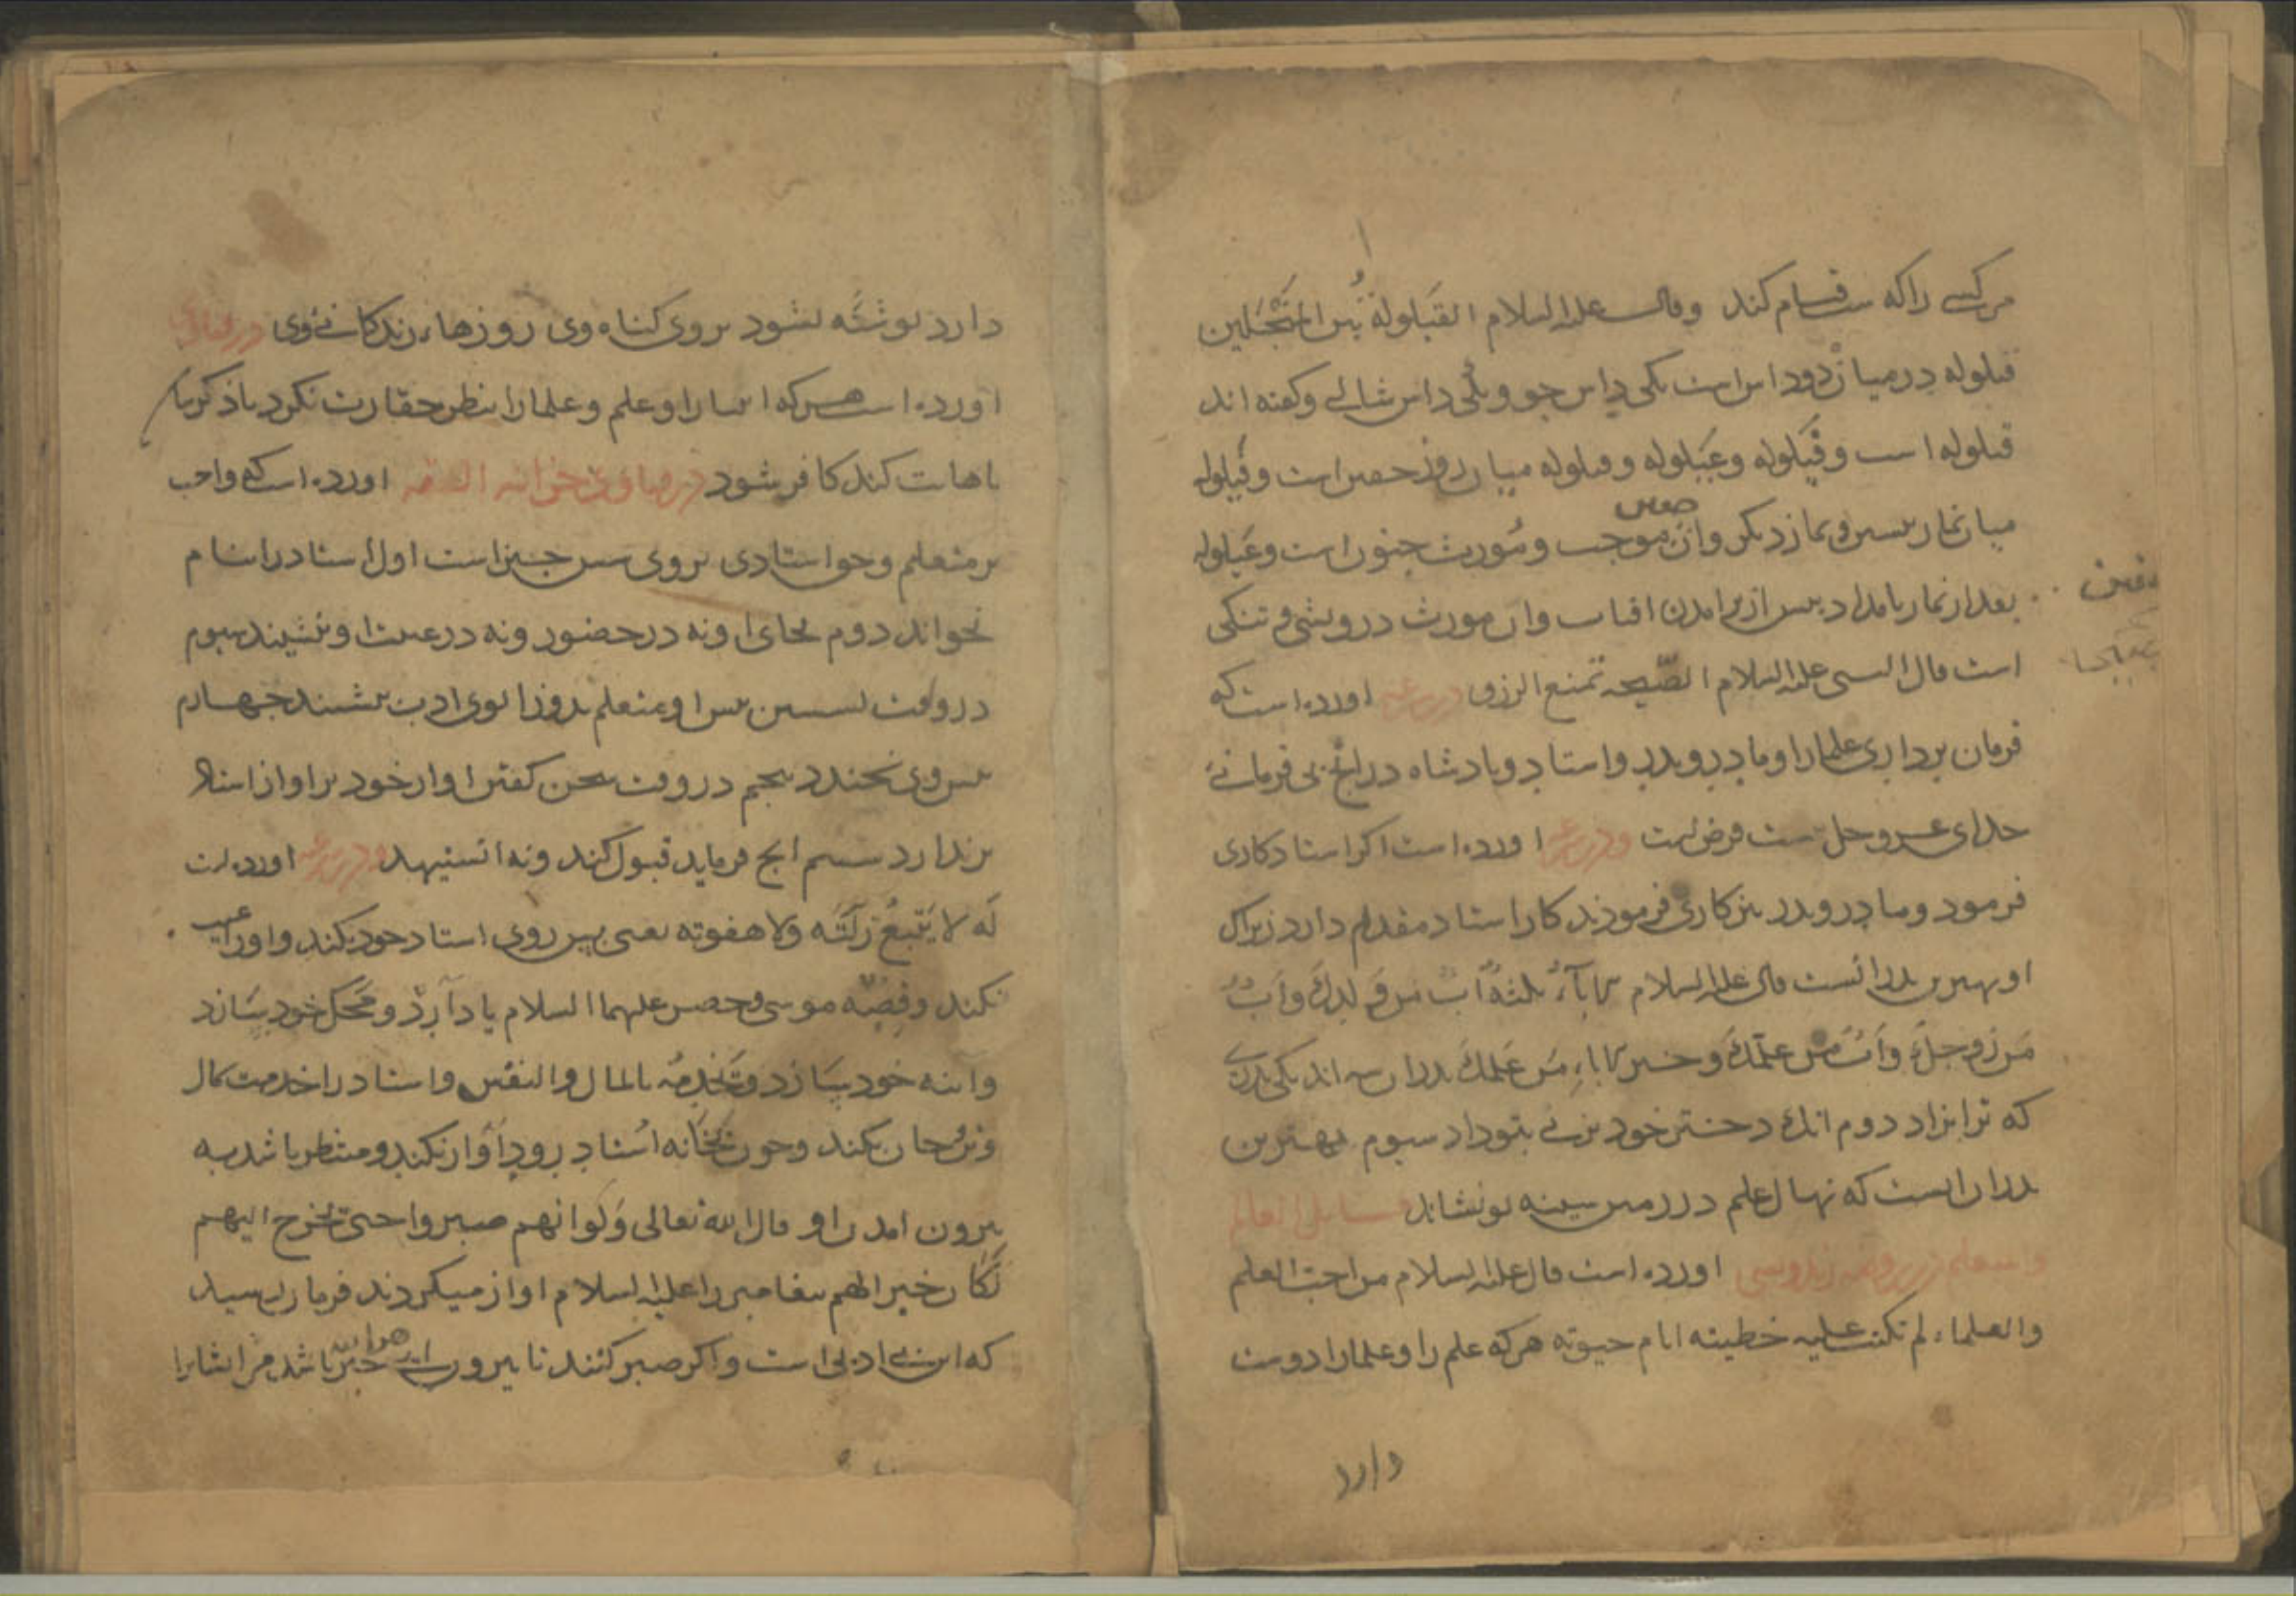 مر کسی را که قیام کند وقال علیه السلام القیلولة بین المنجلین
قیلوله در میان دو داس است یکی داس جو و یکی داس شالی و گفته اند
قیلوله است و فیلوله و عیلوله و قیلوله میان روز حصر است و فیلوله
میان نماز پسین و نماز دیگر وآن موجب و مورث جنون است و عیلوله
بعد از نماز بامداد پس از برآمدن افتاب وآن مورث درویشی و تنکی
است قال النبی علیه السلام الصبحه تمنع الرزق اورده است که
فرمان برداری علما را و مادر و پدر و استاد و پادشاه در انچ بی فرمانی
خدای عز وجل نیست فرض است اورده است اکر استاد کاری
فرمود و مادر و پدر نیز کاری فرمودند کار استاد مقدم دارد زیراک
او بهترین پدرانست قال علیه السلام الاباء ثلثة اب من ولدک و اب
من زوجک و اب من علمک و خیر الاباء من علمک پدران سه اند یکی پدری
که ترا بزاد دوم انک دختر خود بزنی بتو داد سیوم بهترین
پدران انست که نهال علم در زمین سینه تو نشاند مسایل العالم
والمتعلم در روضه زندویسی اورده است قال علیه السلام من احب العلم
والعلماء لم تکتب علیه خطیئته ایام حیوته هر که علم را و علما را دوست
دارد
دارد نوشته نشود بر وی کناه وی روزهاء زندکانی وی
اورده است هر که انبیا را و علم و علما را بنظر حقارت نکرد یا ذکر با
باهانت کند کافر شود در فتاوی خزانه الفقه اورده است که واجب
بر متعلم و حق استادی بر وی شش چیز است اول استاد را بنام
نخواند دوم بجای او نه در حضور و نه در غیبت او ننشیند سیوم
در وقت نشستن پیش او متعلم بدو زانوی ادب بنشیند چهارم
پیش وی نخندد پنجم در وقت سخن کفتن اواز خود بر اواز استاد
بر ندارد ششم انچ فرماید قبول کند و نه استیهد اورده است
که لا یتبع زلته ولا هفوته یعنی پس روی استاد خود بکند و او را عیب
نکند و قصه موسی و خضر علیهما السلام یاد آرد و محک خود بسازد
وآینه خود بسازد و یخدمه بالمال والنفس و استاد را خدمت بمال
و تن و جان بکند و چون بخانه استاد رود آواز نکند و منتظر باشد به
بیرون امدن او قال الله تعالی ولو انهم صبروا حتی تخرج الیهم
لکان خیرا لهم پیغامبر را علیه السلام اواز میکردند فرمان رسید
که این بی ادبی است و اکر صبر کنند تا بیرون ائی هر اینه خیر باشد مر ایشانرا